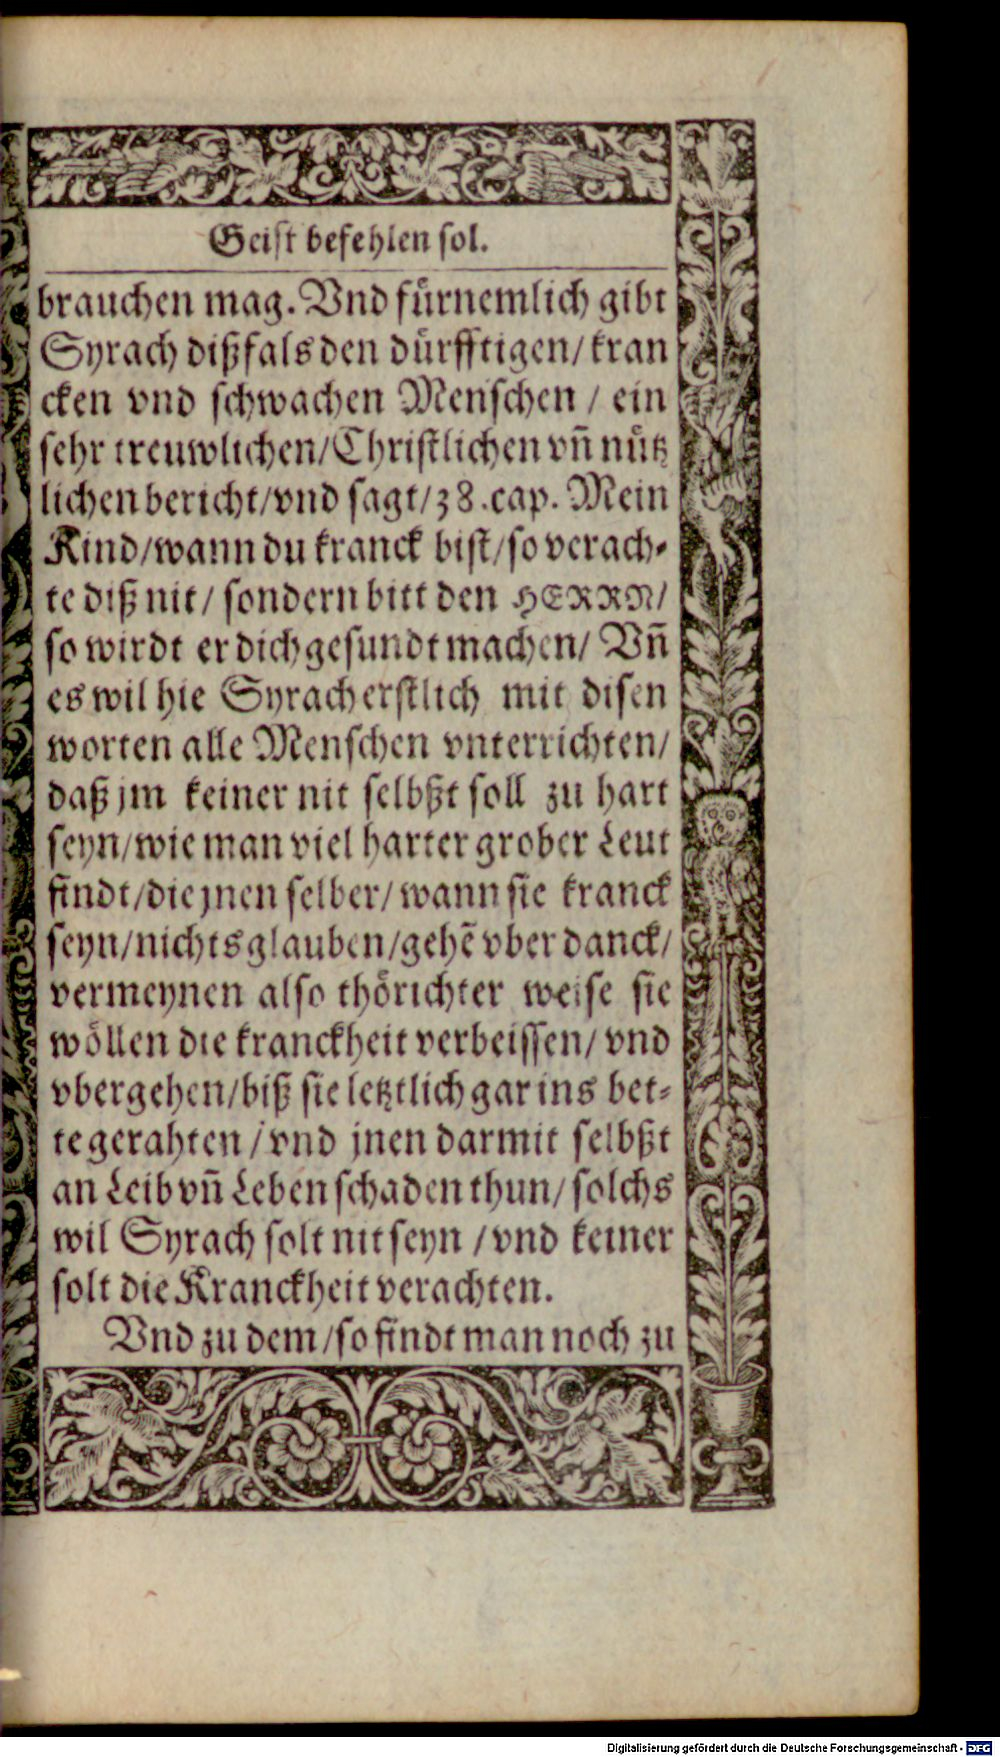 Geist befehlen sol.
brauchen mag. Vnd fürnemlich gibt
Syrach dißfals den dürfftigen/ kran
cken vnd schwachen Menschen / ein
sehr treuwlichen/Christlichen vñ nütz
lichen bericht/vnd sagt/38.cap. Mein
Kind/wann du kranck bist/so verach-
te diß nit/ sondern bitt den HERRN/
so wirdt er dich gesundt machen/ Vñ
es wil hie Syrach erstlich mit disen
worten alle Menschen vnterrichten/
daß jm keiner nit selbßt soll zu hart
seyn/wie man viel harter grober Leut
findt/die jnen selber/ wann sie kranck
seyn/nichts glauben/gehẽ vber danck/
vermeynen also thörichter weise sie
wöllen die kranckheit verbeissen/ vnd
vbergehen/biß sie letztlich gar ins bet-
te gerahten / vnd jnen darmit selbßt
an Leib vñ Leben schaden thun/ solchs
wil Syrach solt nit seyn / vnd keiner
solt die Kranckheit verachten.
Vnd zu dem/so findt man noch zu
Digitalisierung gefördert durch die Deutsche Forschungsgemeinschaft - DFG